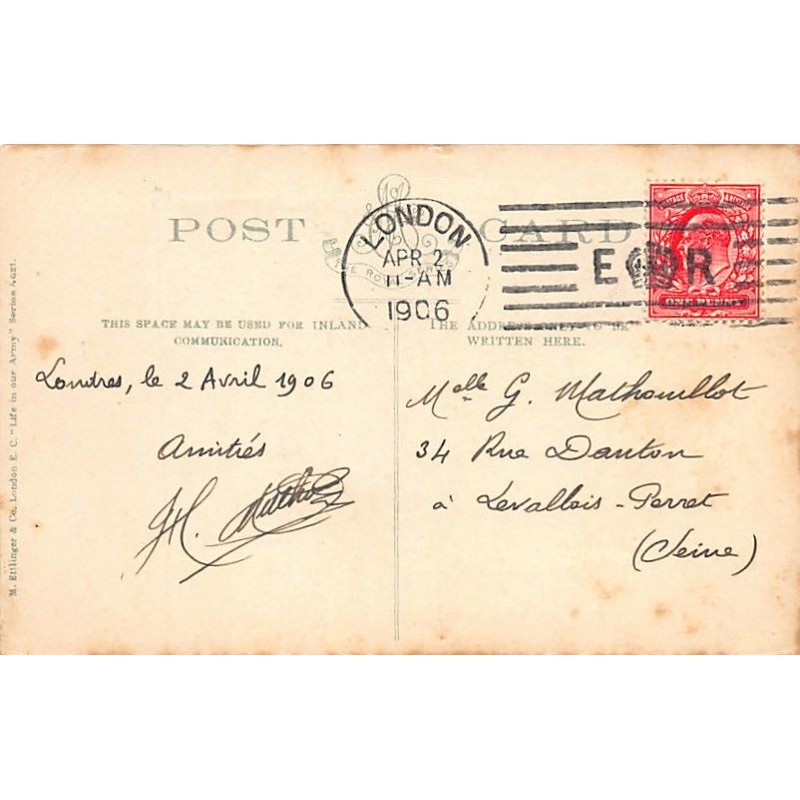 POST CARD
THE ROYAL SERIES
LONDON
APR 2
11-AM
1906
E R
ONE PENNY
THIS SPACE MAY BE USED FOR INLAND
COMMUNICATION.
THE ADDRESS ONLY TO BE
WRITTEN HERE.
M. Ettlinger & Co. London E. C. "Life in our Army" Series 4621.
Londres, le 2 Avril 1906
Amitiés
H.
Melle G. Mathouillot
34 Rue Danton
à Levallois-Perret
(Seine)